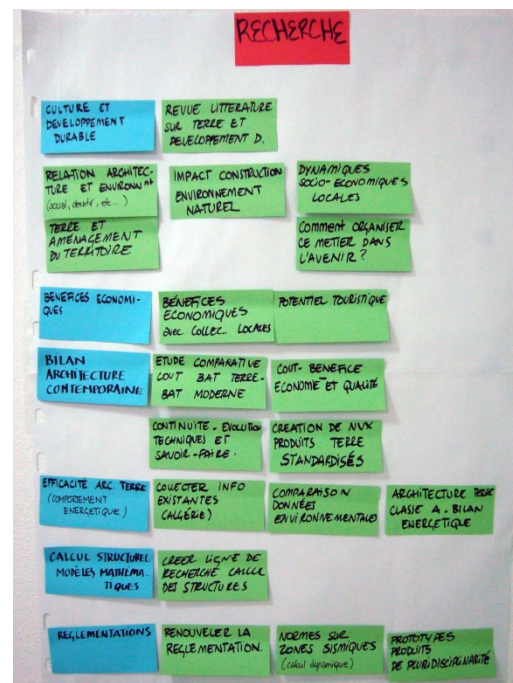 RECHERCHE
CULTURE ET
DEVELOPPEMENT
DURABLE
REVUE LITTERATURE
SUR TERRE ET
DEVELOPPEMENT D.
RELATION ARCHITEC-
TURE ET ENVIRONNnt
(social, densité, etc...)
IMPACT CONSTRUCTION
ENVIRONNEMENT
NATUREL
DYNAMIQUES
SOCIO-ECONOMIQUES
LOCALES
TERRE ET
AMÉNAGEMENT
DU TERRITOIRE
Comment ORGANISER
CE METIER DANS
L'AVENIR?
BENEFICES ECONOMI-
QUES
BÉNÉFICES
ECONOMIQUES
avec COLLEC.. LOCALES
POTENTIEL TOURISTIQUE
BILAN
ARCHITECTURE
CONTEMPORAINE
ETUDE COMPARATIVE
COUT BAT TERRE-
BAT MODERNE
COUT- BENEFICE
ECONOMIE ET QUALITÉ
CONTINUITE - EVOLUTION
TECHNIQUES ET
SAVOIR-FAIRE.
CREATION DE NVX
PRODUITS TERRE
STANDARDISÉS
EFFICACITÉ ARC. TERRE
(COMPORTEMENT
ENERGETIQUE)
COLLECTER INFO
EXISTANTES
(ALGÉRIE)
COMPARAISON
DONNÉES
ENVIRONNEMENTALES
ARCHITECTURE TERRE
CLASSE A. BILAN
ENERGETIQUE
CALCUL STRUCTUREL
MODÈLES MATHÉMA-
TIQUES
CREER LIGNE DE
RECHERCHE CALCUL
DES STRUCTURES
REGLEMENTATIONS
RENOUVELER LA
REGLEMENTATION.
NORMES SUR
ZONES SISMIQUES
(calcul dynamique)
PROTOTYPES
PRODUITS
DE PLURIDISCIPLINARITÉ